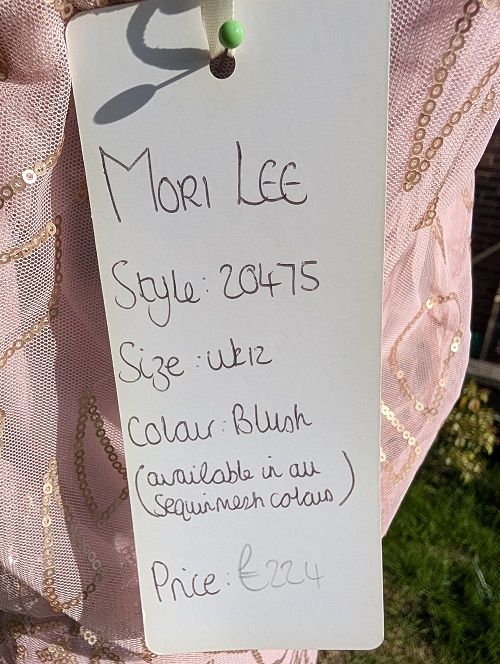 MORI LEE
Style: 20475
Size: UK12
Colour: Blush
(available in all
sequin mesh colours)
Price: £224